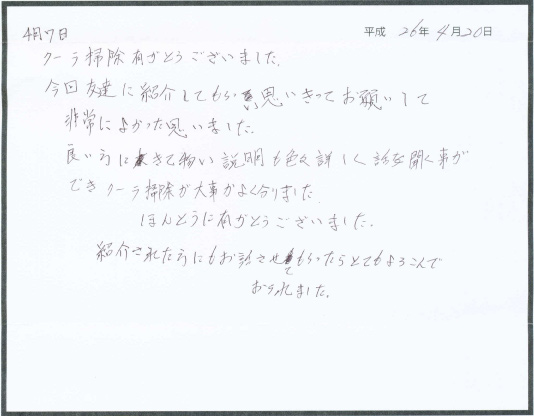 4月17日
平成 26年 4月20日
クーラ掃除有がとうございました。
今回友達に紹介してもらい思いきってお願いして
非常によかった思いました。
良い方にきて物い説明も色々詳しく話を聞く事が
できクーラ掃除が大事がよく分りました。
ほんとうに有がとうございました。
紹介された方にもお話させてもらったらとてもよろこんで
おられました。